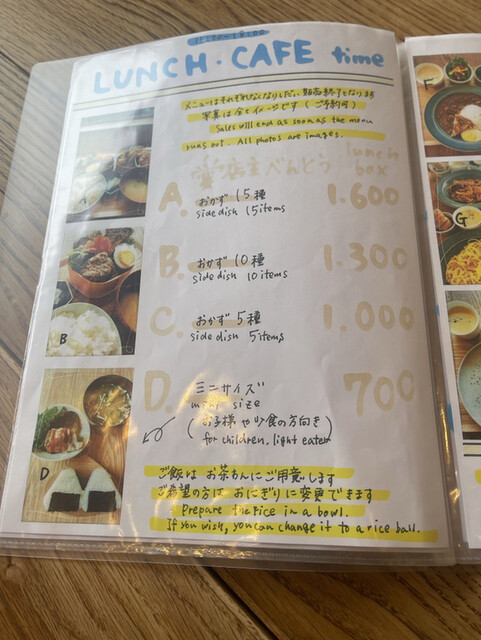 LUNCH・CAFE time
メニューはそれぞれなくなりしだい、販売終了となります
写真は全てイメージです（ご予約可）
Sales will end as soon as the menu
runs out. All photos are images.
店主べんとう lunch
box
A. おかず 15種 1.600
side dish 15items
B. おかず 10種 1.300
side dish 10 items
C. おかず 5種 1.000
side dish 5items
D. ミニサイズ 700
mini size
(お子様や少食の方向き)
for children, light eater
ご飯は お茶わんにご用意します
ご希望の方は おにぎりに変更できます
Prepare the rice in a bowl.
If you wish, you can change it to a rice ball.
A
B
D
F
G